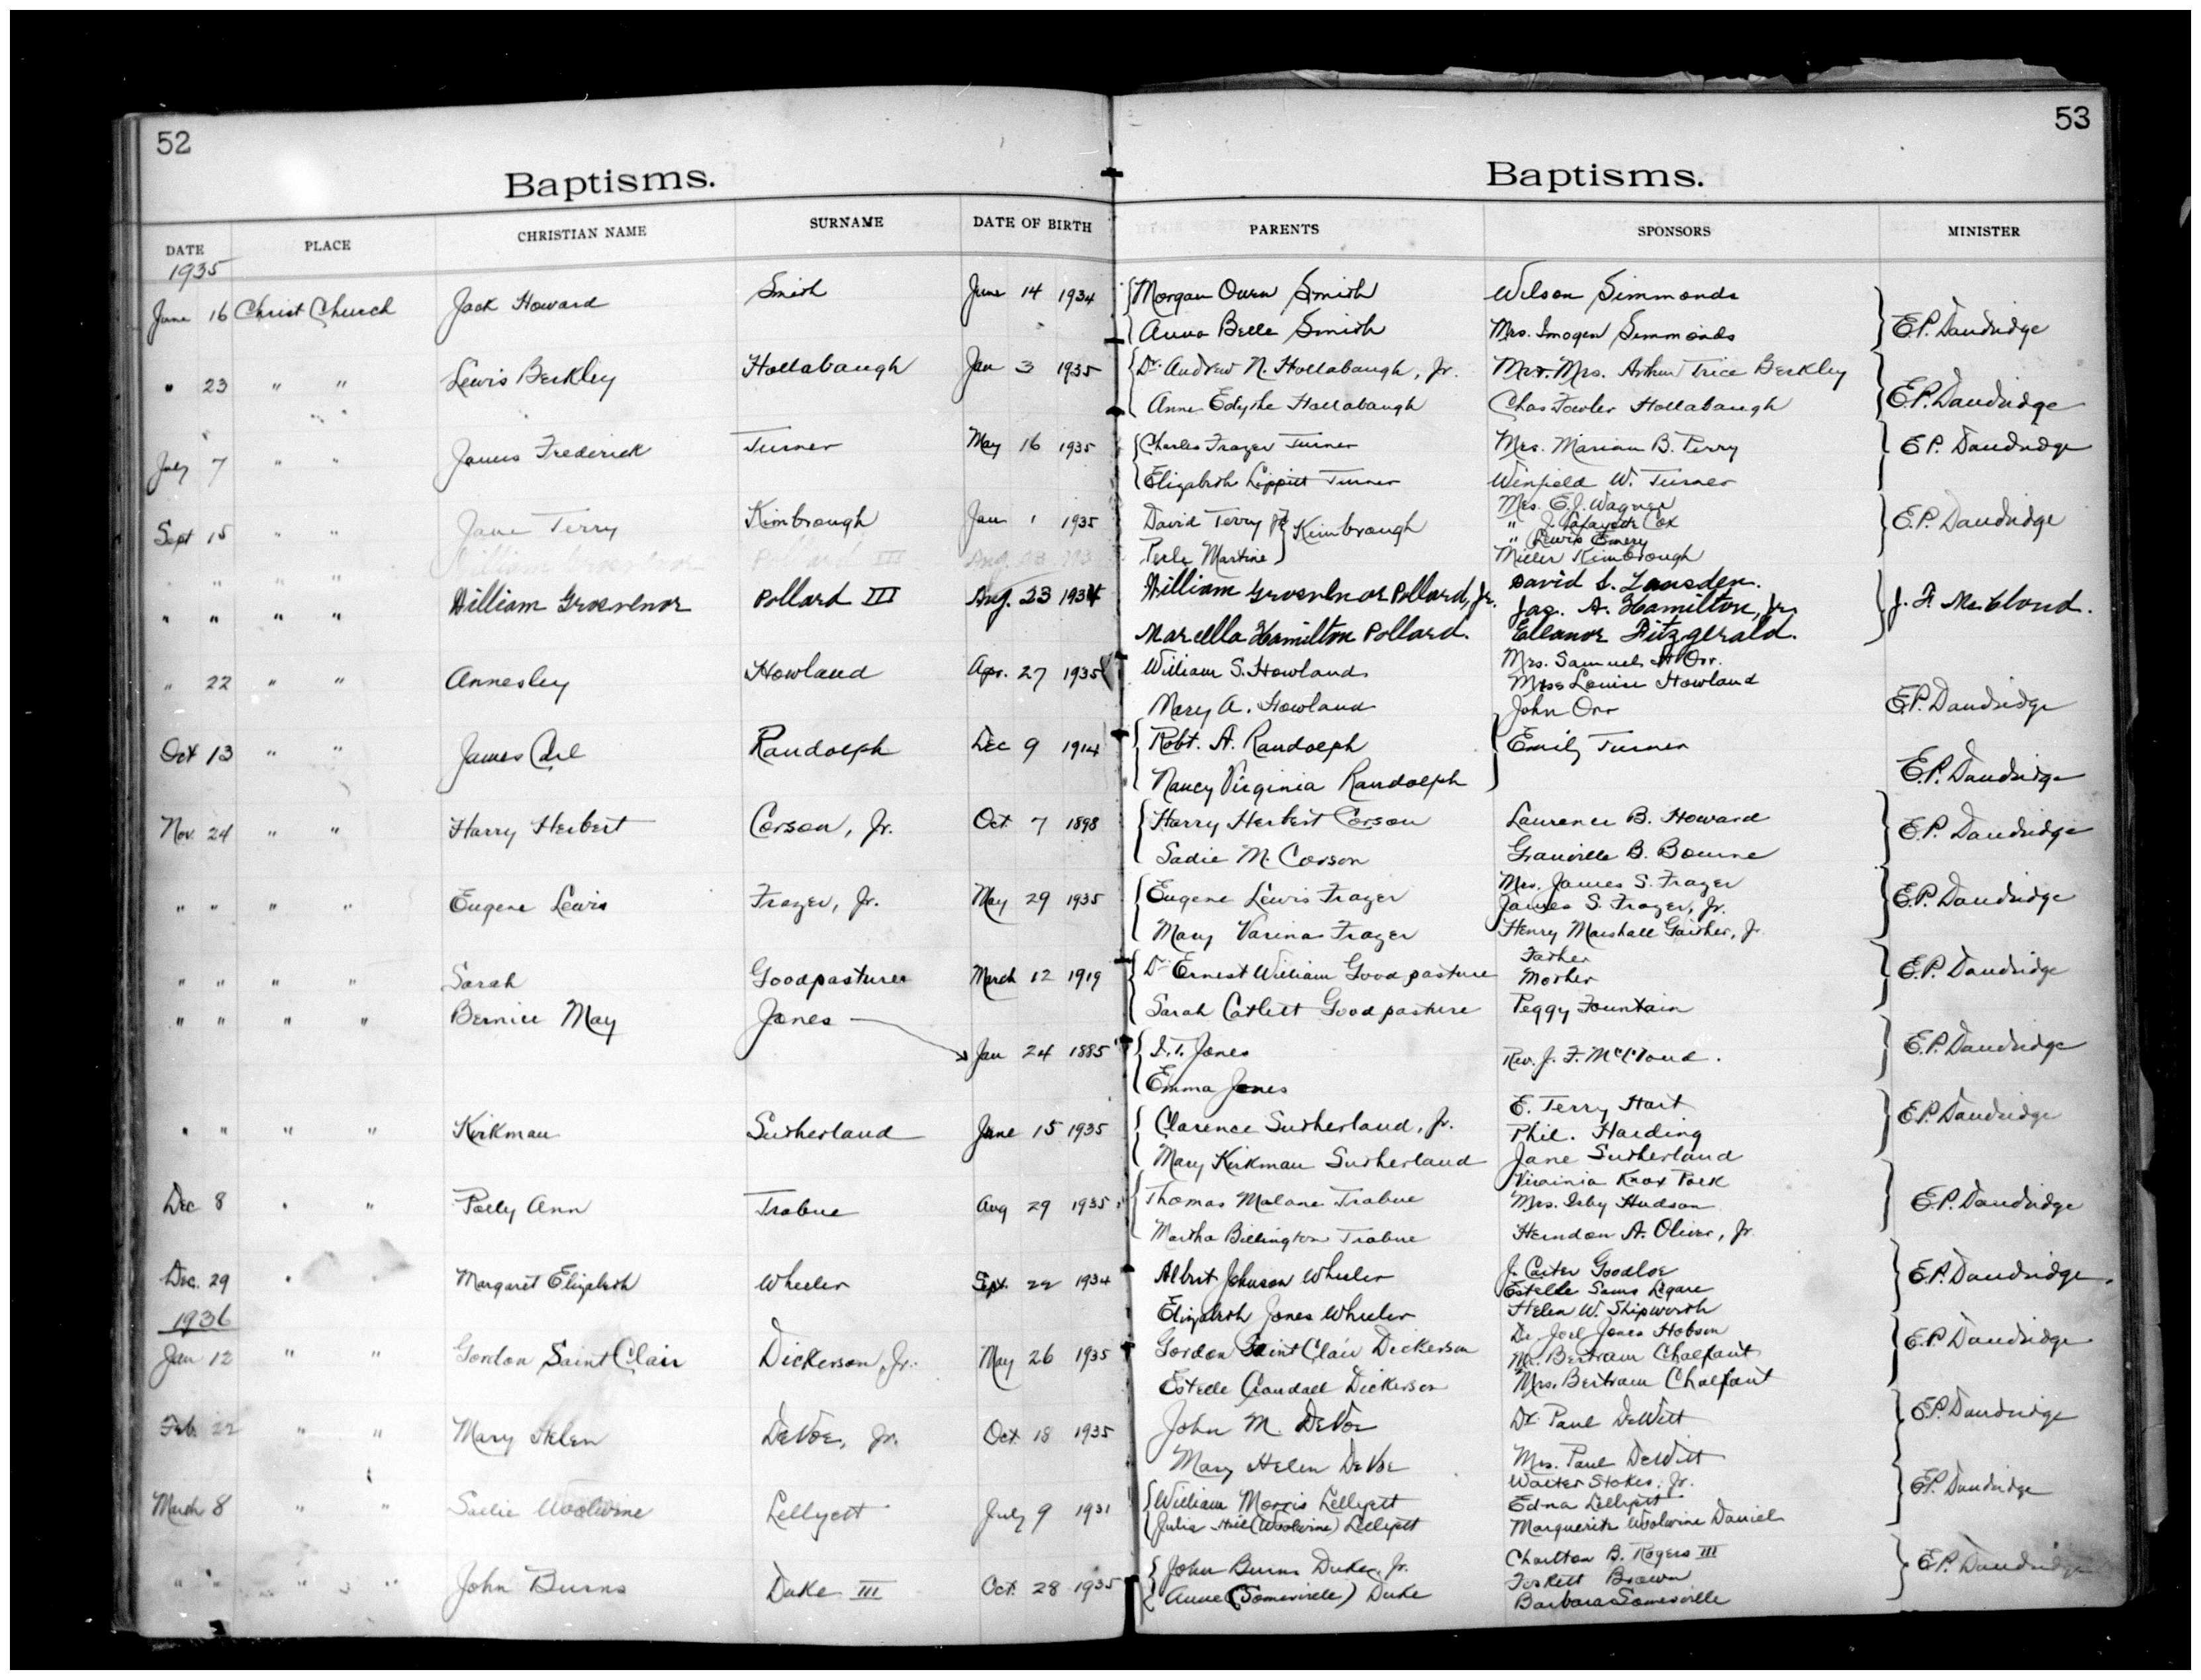 52
Baptisms.
DATE PLACE CHRISTIAN NAME SURNAME DATE OF BIRTH
1935
June 16 Christ Church Jack Howard Smith June 14 1934
" 23 " " Lewis Berkley Hollabaugh Jan 3 1935
July 7 " " James Frederick Turner May 16 1935
Sept 15 " " Jane Terry Kimbrough Jan 1 1935
" " " " William Grosvenor Pollard III Aug. 23 193
" " " " William Grosvenor Pollard III Aug. 23 1934
" 22 " " Annesley Howland Apr. 27 1935
Oct 13 " " James Carl Randolph Dec 9 1914
Nov. 24 " " Harry Herbert Corson, Jr. Oct. 7 1898
" " " " Eugene Lewis Frazer, Jr. May 29 1935
" " " " Sarah Goodpasture March 12 1919
" " " " Bernice May Jones
Jan 24 1885
" " " " Kirkman Sutherland June 15 1935
Dec 8 " " Polly Ann Trabue Aug 29 1935
Dec. 29 " " Margaret Elizabeth Wheeler Sept. 22 1934
1936
Jan 12 " " Gordon Saint Clair Dickerson, Jr. May 26 1935
Feb. 22 " " Mary Helen DeVoe, Jr. Oct 18 1935
March 8 " " Sallie Woolwine Lellyett July 9 1931
" " " " John Burns Duke III Oct. 28 1935
53
Baptisms.
PARENTS SPONSORS MINISTER
Morgan Owen Smith Wilson Simmonds
Anna Belle Smith Mrs. Imogen Simmonds E.P. Dandridge
Dr. Andrew N. Hollabaugh, Jr. Mr. Mrs. Arthur Trice Berkley
Anne Edythe Hollabaugh Chas Fowler Hollabaugh E.P. Dandridge
Charles Frazer Turner Mrs. Marian B. Perry E.P. Dandridge
Elizabeth Lippitt Turner Winfield W. Turner
Mrs. E.J. Wagner
David Terry Jr. Kimbrough " J. Lafayette Cox E.P. Dandridge
" Lewis Emery
Perle Martine Miller Kimbrough
William Grosvenor Pollard, Jr. David S. Lansden.
Jas. A. Hamilton, Jr. J. F. McCloud.
Marcella Hamilton Pollard. Eleanor Fitzgerald.
William S. Howland Mrs. Samuel H Orr.
Miss Louise Howland
Mary A. Howland John Orr E.P. Dandridge
Robt. A. Randolph Emily Turner
Nancy Virginia Randolph E.P. Dandridge
Harry Herbert Corson Laurence B. Howard E.P. Dandridge
Sadie M. Corson Granville B. Bourne
Mrs. James S. Frazer
Eugene Lewis Frazer James S. Frazer, Jr. E.P. Dandridge
Mary Varina Frazer Henry Marshall Gaither, Jr
Father
Dr. Ernest William Goodpasture Mother E.P. Dandridge
Sarah Catlett Goodpasture Peggy Fountain
Jones Rev. J. F. McCloud. E.P. Dandridge
Emma Jones
E. Terry Hart
Clarence Sutherland, Jr. Phil. Harding E.P. Dandridge
Mary Kirkman Sutherland Jane Sutherland
Virginia Knox Polk
Thomas Malone Trabue Mrs. Isby Hudson E.P. Dandridge
Martha Billington Trabue Herndon A. Oliver, Jr.
Albert Johnson Wheeler J. Carter Goodloe E.P. Dandridge.
Estelle Sams Legare
Elizabeth Jones Wheeler Helen W. Shipworth
Dr. Joel Jones Hobson
Gordon Saint Clair Dickerson Mr. Bertram Chalfant E.P. Dandridge
Estelle Crandall Dickerson Mrs. Bertram Chalfant
John M. DeVoe Dr. Paul DeWitt E.P. Dandridge
Mary Helen DeVoe Mrs. Paul DeWitt
Walter Stokes, Jr.
William Morris Lellyett Edna Lellyett E.P. Dandridge
Julia Hill (Woolwine) Lellyett Marguerite Woolwine Daniel
John Burns Duke, Jr. Charlton B. Rogers III E.P. Dandridge
Anne (Somerville) Duke Brown
Barbara Somerville